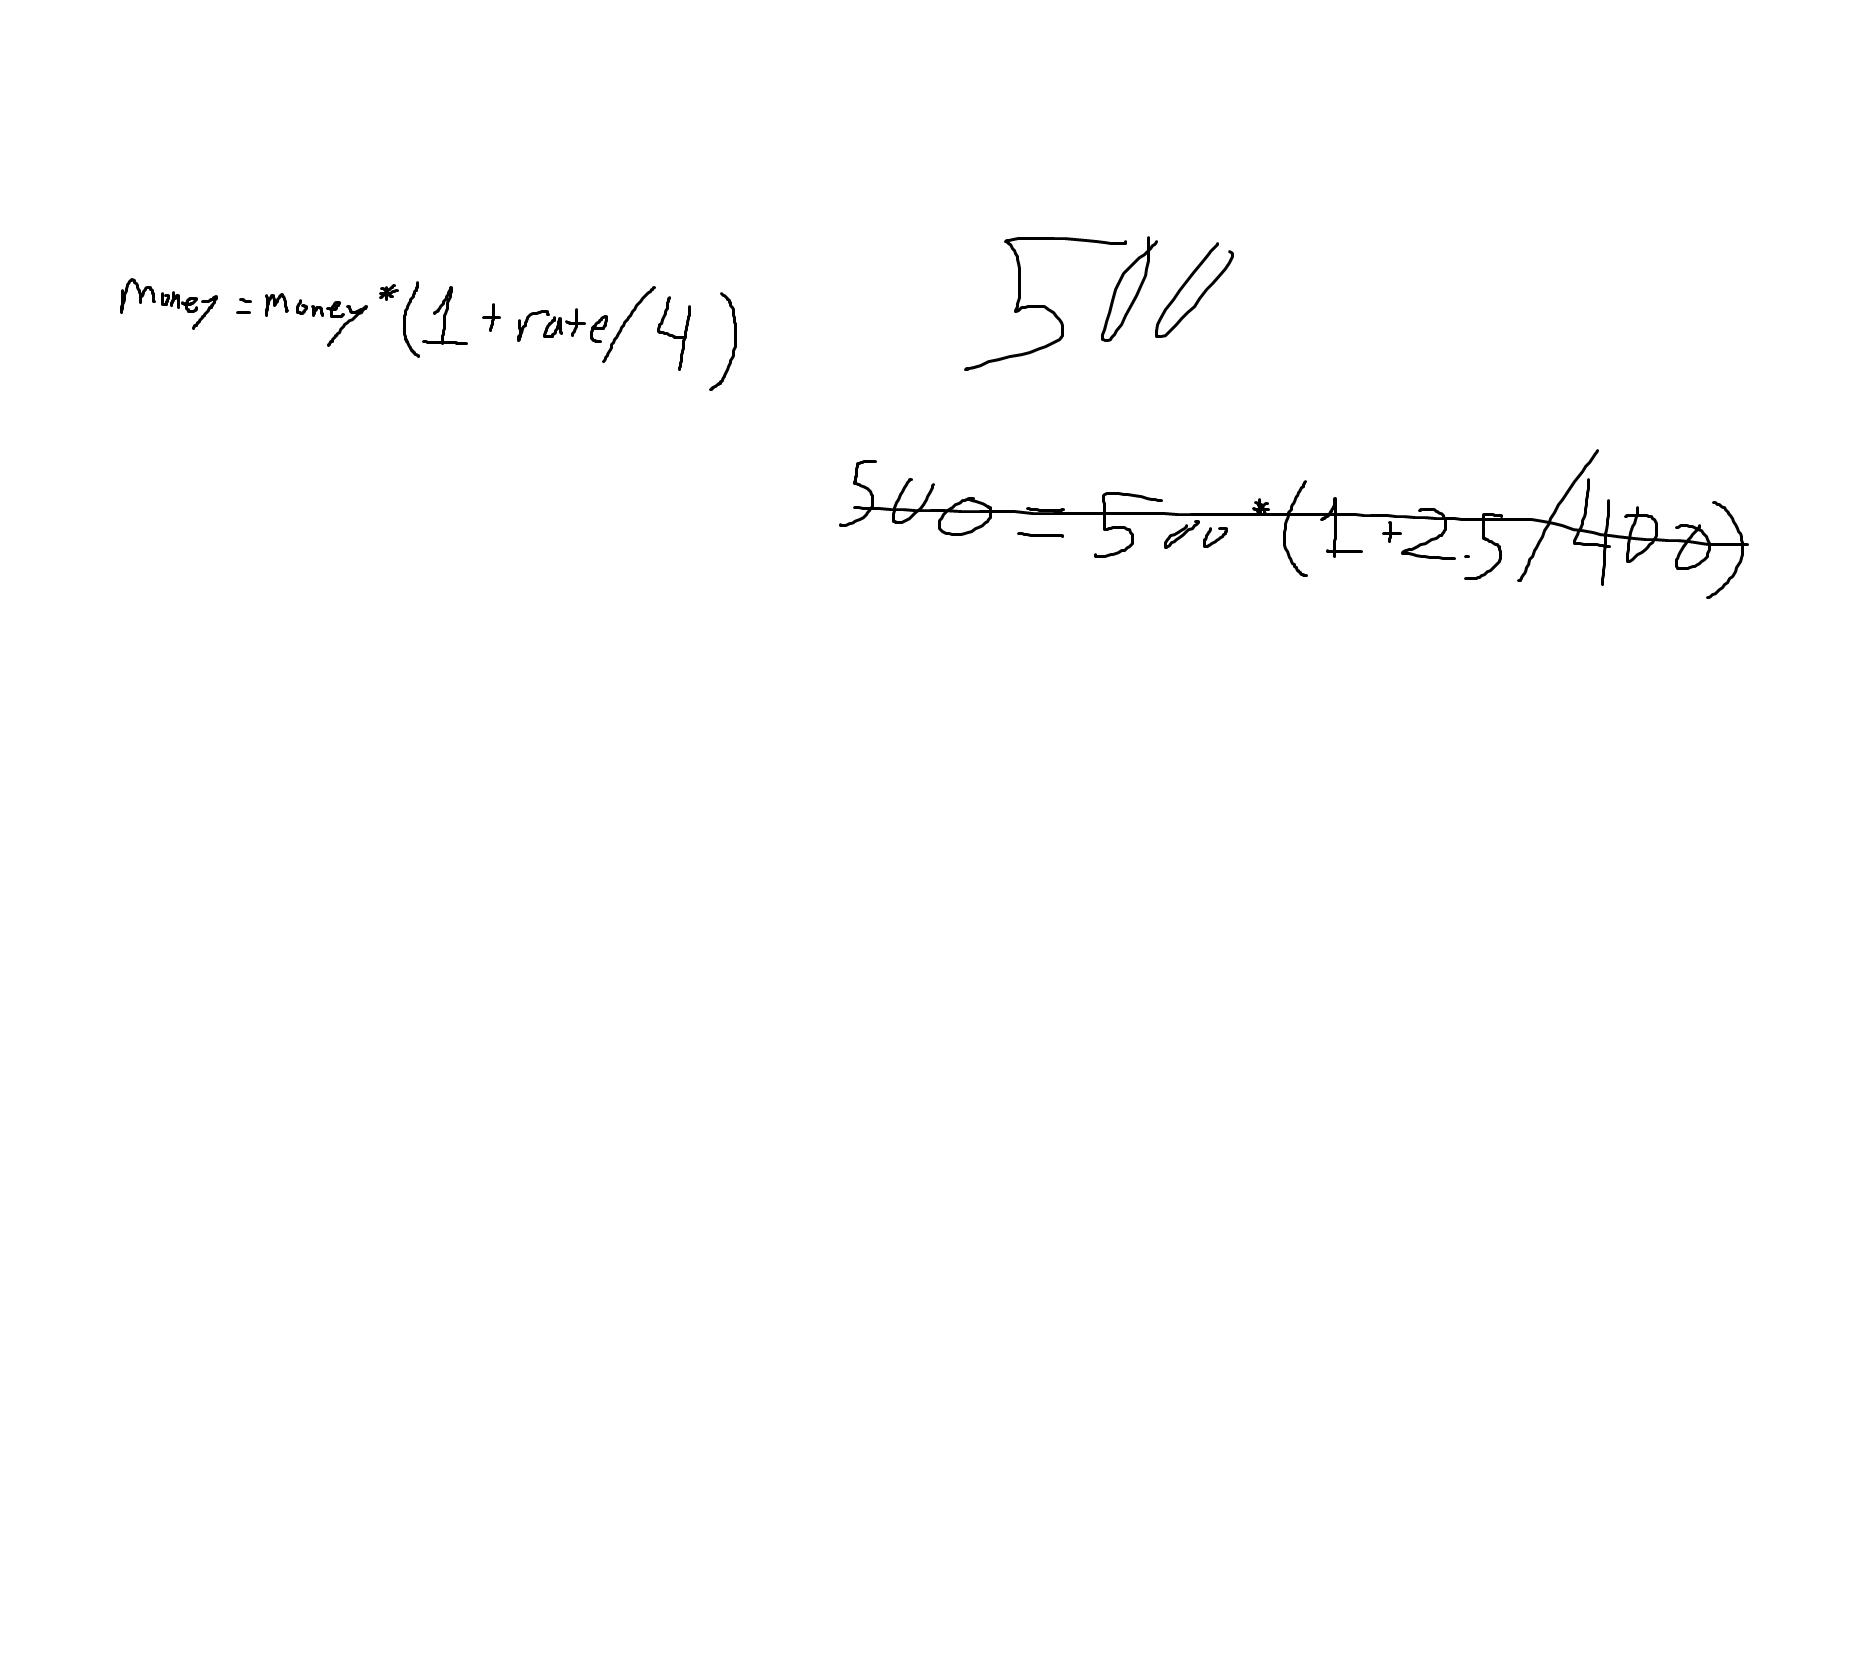 money = money * (1 + rate/4)
500
500 = 500 * (1 + 2.5/400)